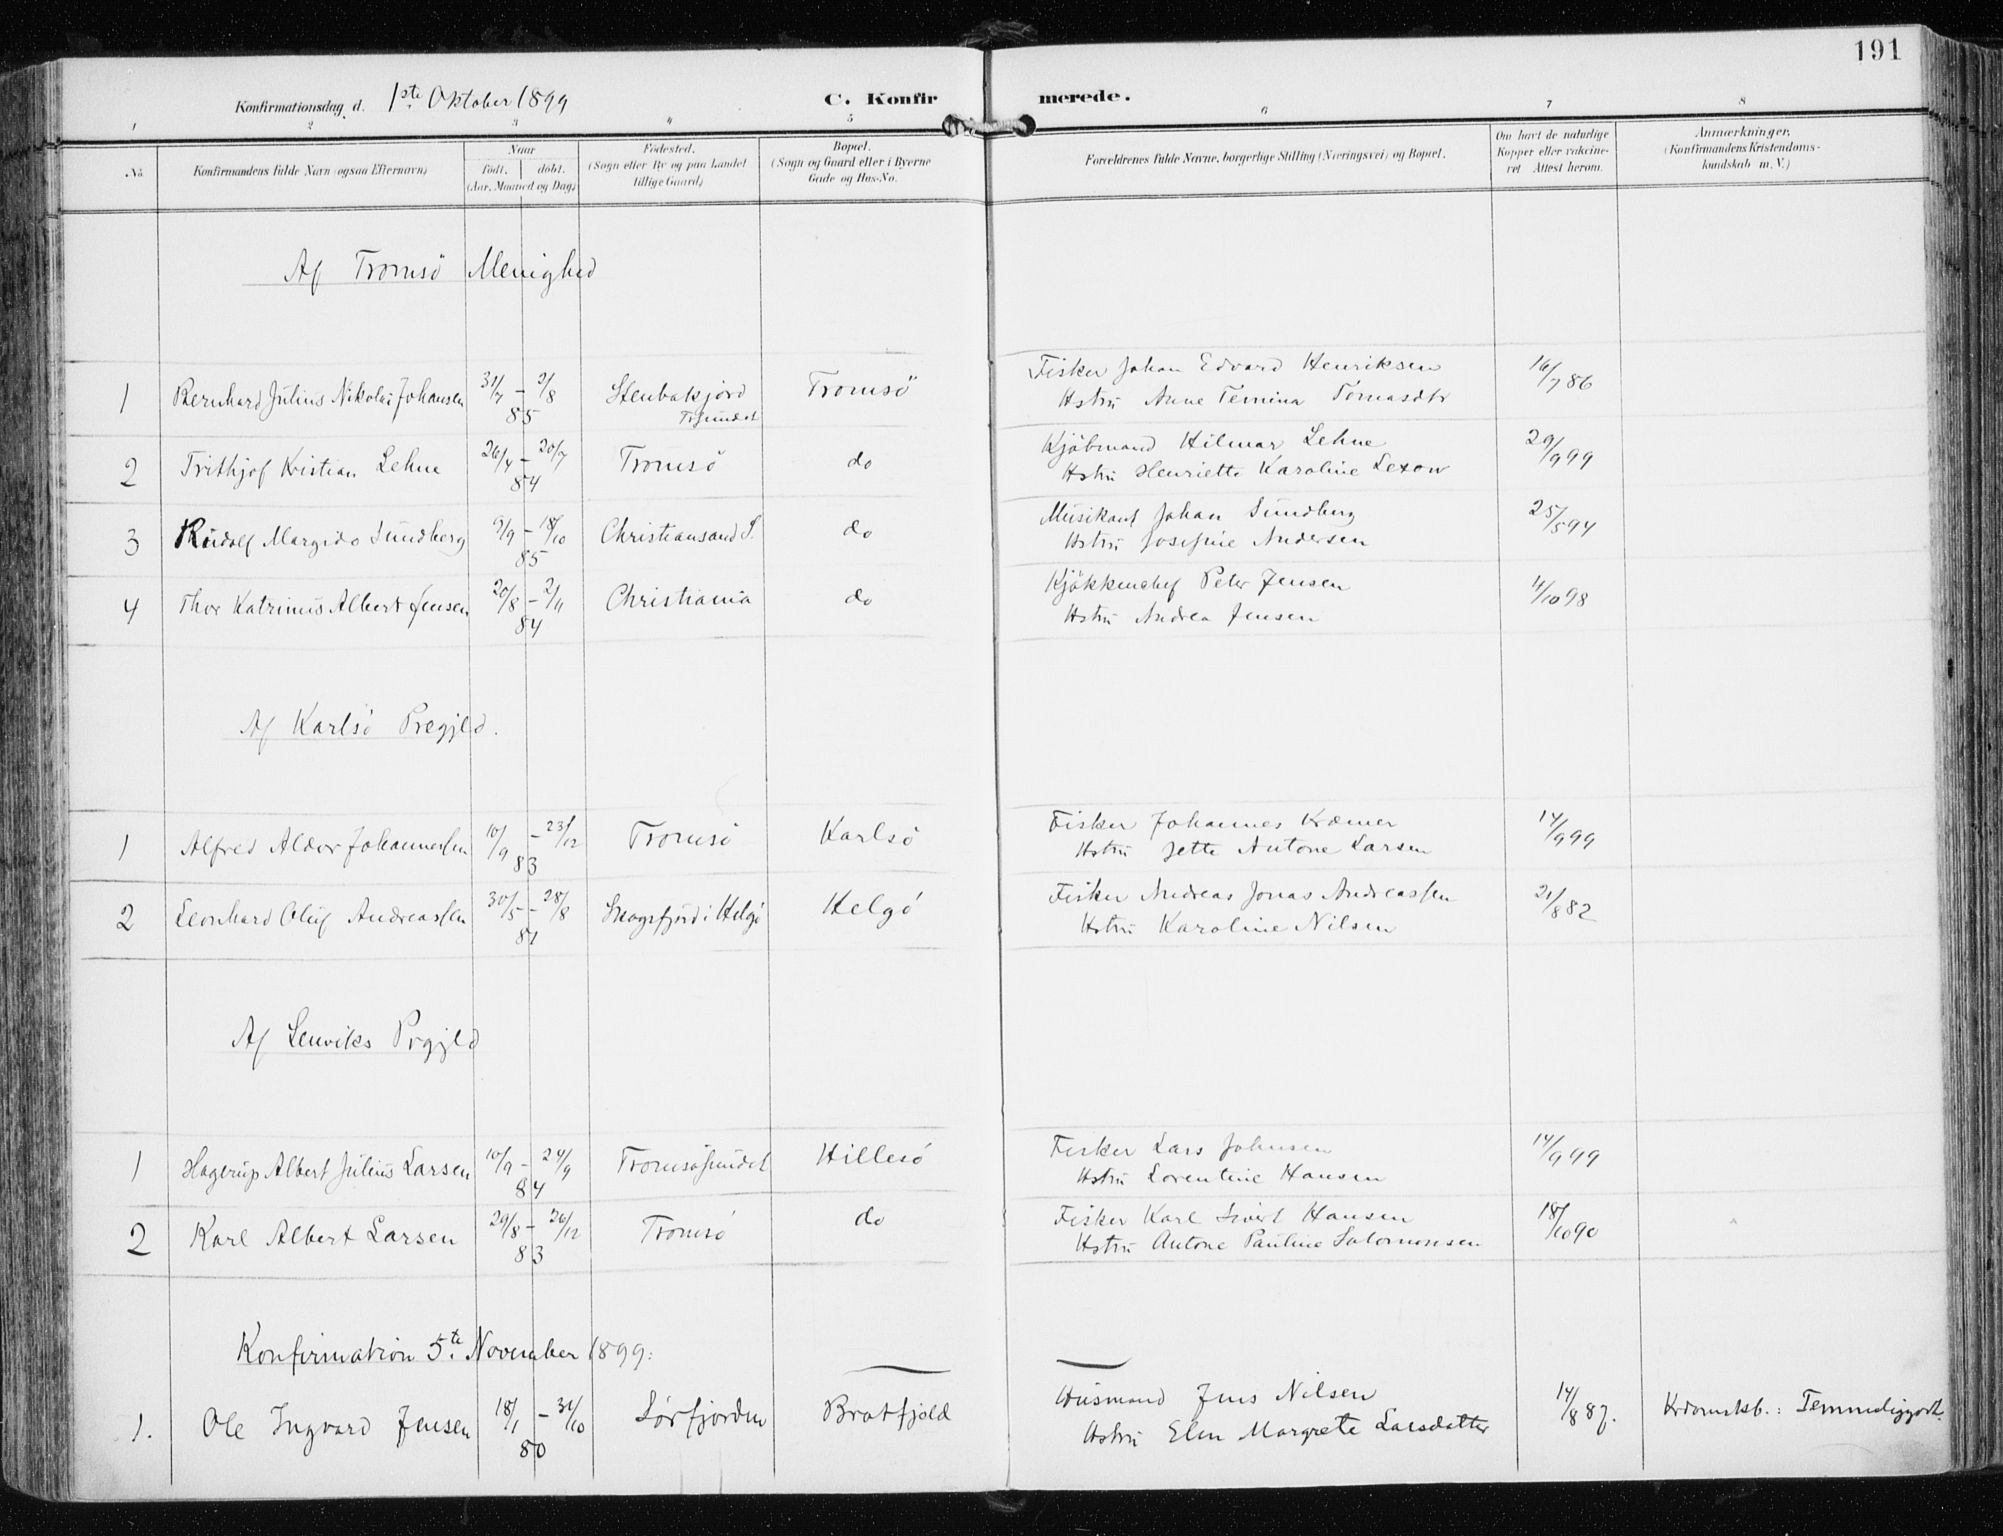 191
Konfirmationsdag d. 1ste Oktober 1899
C. Konfirmerede.
1 2 3 4 5 6 7 8
No.
Konfirmandens fulde Navn (ogsaa Efternavn)
Naar
födt. döbt.
(Aar, Maaned og Dag)
Födested.
(Sogn eller By og paa Landet
tillige Gaard)
Bopæl.
(Sogn og Gaard eller i Byerne
Gade og Hus-No.
Forældrenes fulde Navne, borgerlige Stilling (Næringsvei) og Bopæl.
Om havt de naturlige
Kopper eller vakcine-
ret Attest herom.
Anmærkninger.
(Konfirmandens Kristendoms-
kundskab m. V.)
Af Tromsö Menighed
1 Bernhard Julius Nikolai Johansen 31/7 – 2/8 85 Stenbakjord Trsundet Tromsö
Fisker Johan Edvard Henriksen 16/7 86
Hstru Anne Temina Tomasdtr
2 Frithjof Kristian Lehne 26/4 – 20/7 84 Tromsö do
Kjöbmand Hilmar Lehne 29/9 99
Hstru Henriette Karoline Lexow
3 Rudolf Margido Sundberg 9/9 – 18/10 85 Christiansand S. do
Musikant Johan Sundberg 25/5 94
Hstru Josefine Andersen
4 Thor Katrinus Albert Jensen 20/8 – 2/11 84 Christiania do
Kjökkenchef Peter Jensen 11/10 98
Hstru Andrea Jensen
Af Karlsö Pregjld.
1 Alfred Aldor Johannessen 10/9 – 23/12 83 Tromsö Karlsö
Fisker Johannes Kræmer 14/9 99
Hstru Jette Antone Larsen
2 Leonhard Oluf Andreassen 30/5 – 28/8 81 Skogsfjord i Helgö Helgö
Fisker Andreas Jonas Andreassen 21/8 82
Hstru Karoline Nilsen
Af Lenviks Prgjld
1 Hagerup Albert Julius Larsen 10/9 – 24/9 84 Tromsösundet Hillesö
Fisker Lars Johnsen 14/9 99
Hstru Lorentine Hansen
2 Karl Albert Larsen 29/8 – 26/12 83 Tromsö do
Fisker Karl Sivert Hansen 18/10 90
Hstru Antone Pauline Salomonsen
Konfirmation 5te November 1899:
1. Ole Ingvard Jensen 18/1 – 31/10 80 Sörfjorden Bratfjeld
Husmand Jens Nilsen 14/8 87. Krdomskb.: Temmeliggodt.
Hstru Elen Margrete Larsdatter